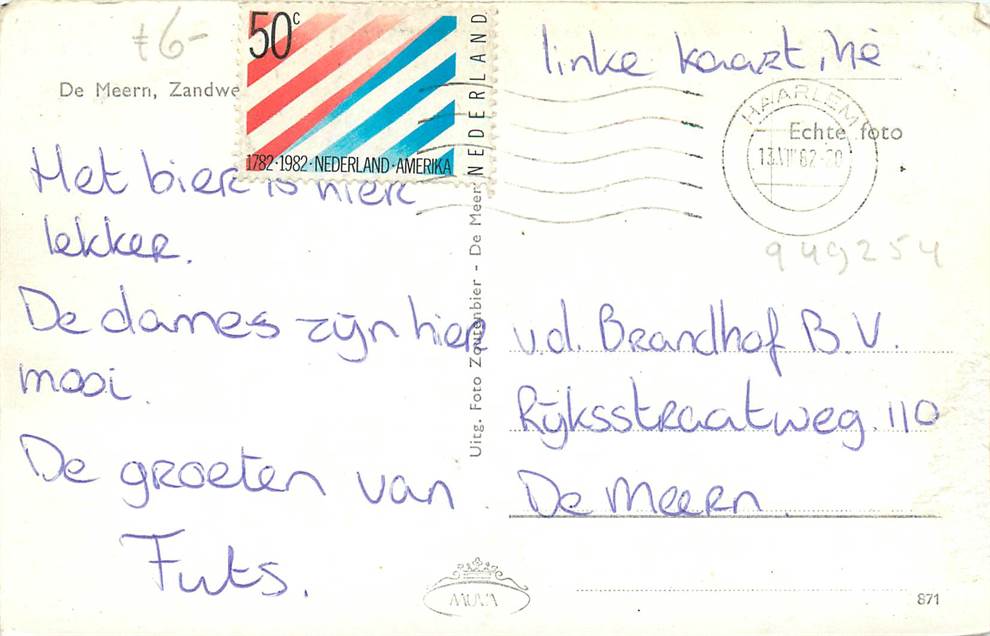 £6-
linke kaart, hè
De Meern, Zandwe
50c
NEDERLAND
1782·1982·NEDERLAND·AMERIKA
HAARLEM
Echte foto
949254
Het bier is hier
lekker.
De dames zijn hier
mooi.
De groeten van
Futs.
Uitg. Foto Zoutenbier - De Meer
v.d. Brandhof B.V.
Rijksstraatweg. 110
De Meern.
MUVA
871